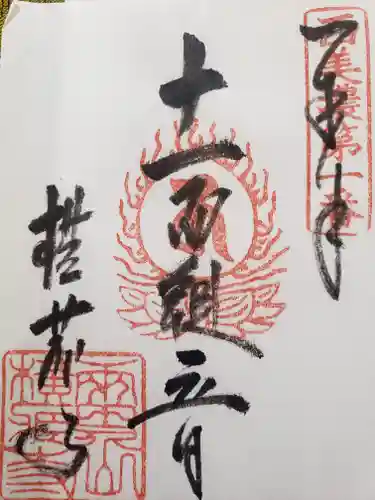 奉拝
西美濃第一番
十一面観音
横蔵寺